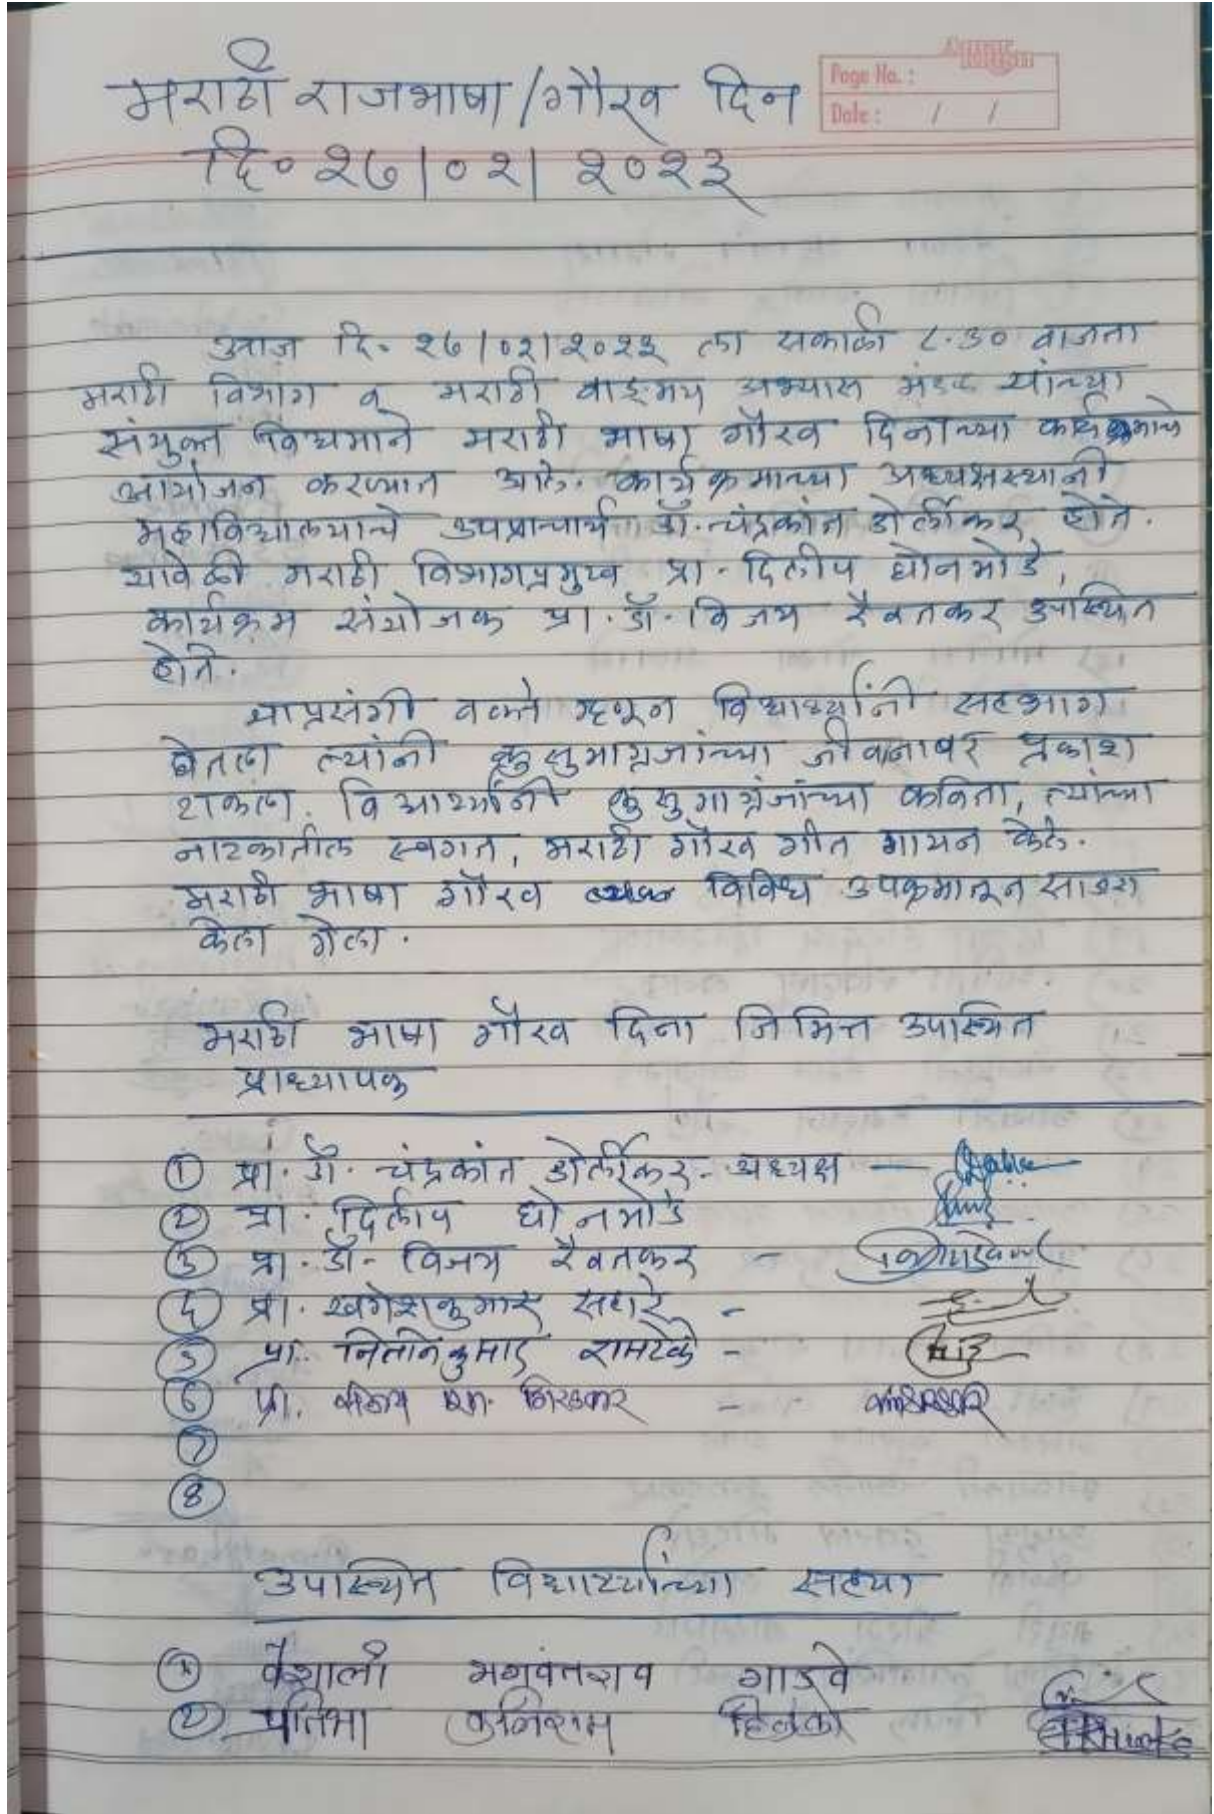 मराठी राजभाषा/गौरव दिन
Page No. :
Date : / /
दि० २७/०२/२०२३
आज दि. २७/०२/२०२३ ला सकाळी ८.३० वाजता
मराठी विभाग व मराठी वाङ्मय अभ्यास मंडळ यांच्या
संयुक्त विद्यमाने मराठी भाषा गौरव दिनाच्या कार्यक्रमाचे
आयोजन करण्यात आले. कार्यक्रमाच्या अध्यक्षस्थानी
महाविद्यालयाचे उपप्राचार्य डॉ. चंद्रकांत डोर्लीकर होते.
यावेळी मराठी विभागप्रमुख प्रा. दिलीप घोनमोडे,
कार्यक्रम संयोजक प्रा. डॉ. विजय रैवतकर उपस्थित
होते.
याप्रसंगी वक्ते म्हणून विद्यार्थ्यांनी सहभाग
घेतला त्यांनी कुसुमाग्रजांच्या जीवनावर प्रकाश
टाकला. विद्यार्थ्यांनी कुसुमाग्रंजांच्या कविता, त्यांच्या
नाटकातील स्वगत, मराठी गौरव गीत गायन केले.
मराठी भाषा गौरव विविध उपक्रमातून साजरा
केला गेला.
मराठी भाषा गौरव दिना निमित्त उपस्थित
प्राध्यापक
① प्रा. डॉ. चंद्रकांत डोर्लीकर - अध्यक्ष —
② प्रा. दिलीप घोनमोडे
③ प्रा. डॉ. विजय रैवतकर -
④ प्रा. खगेशकुमार सहारे -
⑤ प्रा. नितीनकुमार रामटेके -
⑥ प्रा. -
⑦
⑧
उपस्थित विद्यार्थ्यांच्या सह्या
① वैशाली भगवंतराव गाडवे
② प्रतिभा